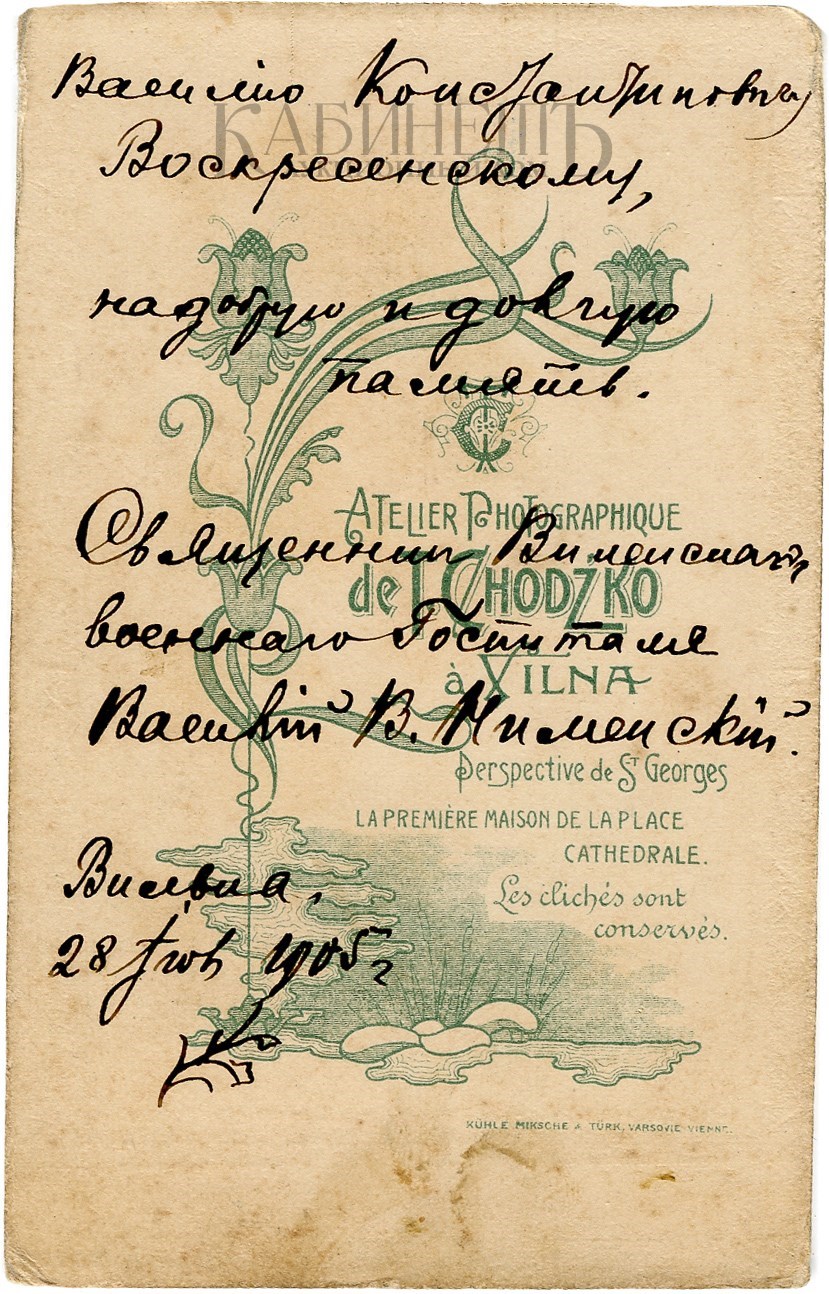 Василію Константиновичу
КАБИНЕТЪ
Воскресенскому,
на добрую и долгую
память.
ATELIER PHOTOGRAPHIQUE
Священникъ Виленскаго
de I. CHODZKO
военнаго Госпиталя
à VILNA
Василій В. Нименскій.
Perspective de ST Georges
LA PREMIÈRE MAISON DE LA PLACE
CATHEDRALE.
Вильна,
Les clichés sont
conservés.
28 1905 г.
KÜHLE MIKSCHE & TÜRK, VARSOVIE VIENNE.